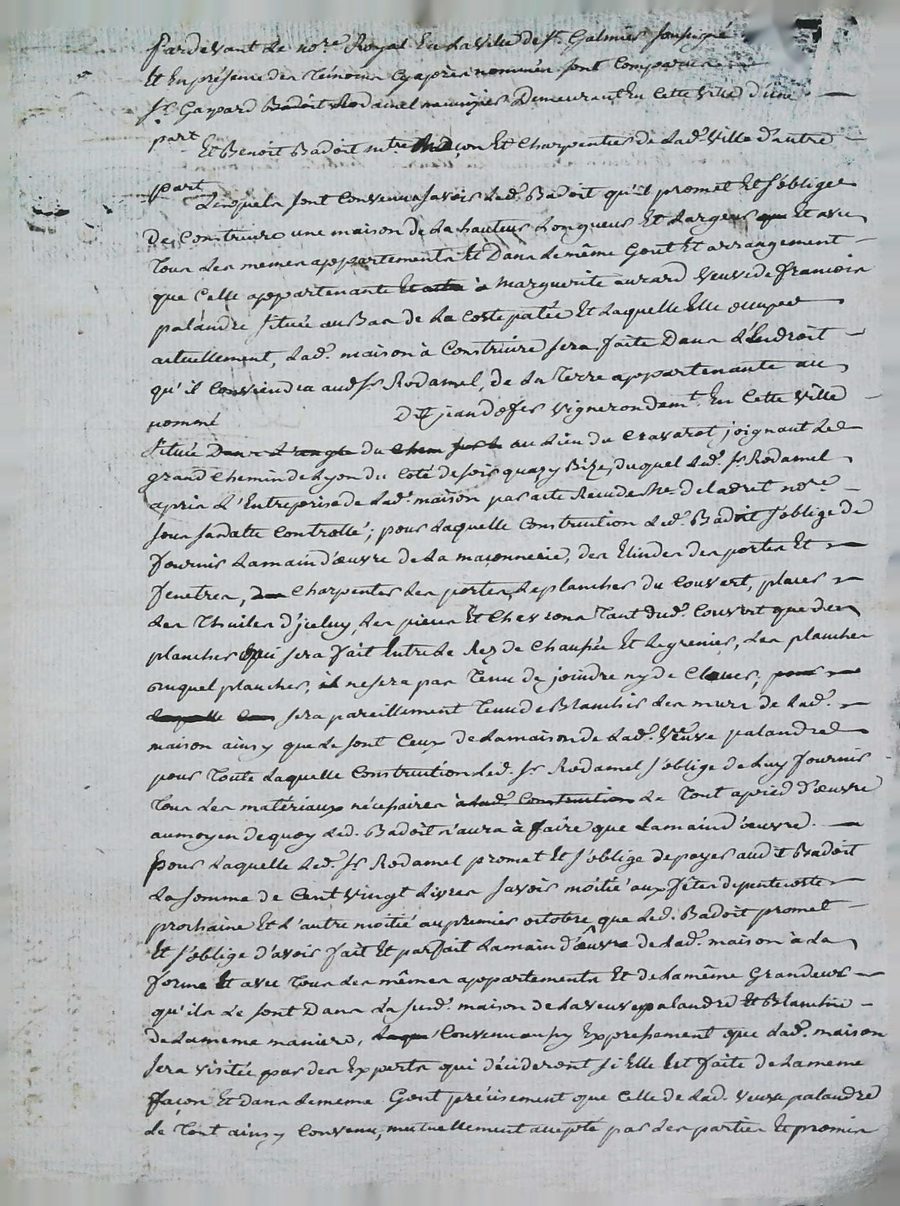 Pardevant Le no.re Royal En La ville de St. Galmier soussigné
Et En présence des témoins Cy après nommés sont Comparus
Sr. Gaspard Badoit Rodamel Demeurant En Cette ville d'une
part
Et Benoit Badoit mtre maçon Et Charpentier de Lad.e ville d'autre
part
Lesquels sont Convenus savoir Led. Badoit qu'il promet Et s'oblige
De Construire une maison de La hauteur Longueur Et Largeur que Et avec
Tous Les memes appartements Et Dans Le même Gout Et arrangement
que Celle appartenante à Marguerite aurard veuve de francois
palandre située au Bas de La Coste patée Et Laquelle Elle occupe
actuellement, Lad.e maison à Construire sera faite Dans L'Endroit
qu'il Conviendra aud. Sr. Rodamel, de La Terre appartenante au
nommé Dit jean d'ofer vigneron dem.t En Cette ville
située Dans L'angle du au Lieu du Cravarot joignant Le
grand Chemin de Lyon du Coté de soir quasy Bize, duquel Led. Sr. Rodamel
a pris L'Entreprise de Lad.e maison par acte Reçu de me. delaaret no.re
sous sa datte Controllé; pour Laquelle Construction Led. Badoit s'oblige de
fournir La main d'œuvre de La maçonnerie, des Elindes des portes Et
fenetres, Charpenter Les portes, Le plancher du Couvert, placer
Les Thuiles d'jceluy, Les pieces Et Chevrons Tant dud. Couvert que des
planchers qui sera fait Entre Le Rez de Chaussée Et Le grenier, Les plancher
auquel plancher, il ne sera pas Tenu de joindre ny de Clouer, pour
Laquelle sera pareillement Tenu de Blanchir Les murs de Lad.e
maison ainsy que Le sont Ceux de La maison de Lad.e veuve palandre
pour Toute Laquelle Construction Led. Sr. Rodamel s'oblige de Luy fournir
Tous Les materiaux nécessaires à Lad.e Construction Le Tout a pied d'œuvre
au moyen de quoy Led. Badoit n'aura à faire que La main d'œuvre.
Pour Laquelle Led. Sr. Rodamel promet Et s'oblige de payer audit Badoit
La somme de Cent vingt Livres savoir moitié aux fêtes de pentecoste
prochaine Et L'autre moitié au premier octobre que Led. Badoit promet
Et s'oblige d'avoir fait Et parfait La main d'œuvre de Lad.e maison à La
forme Et avec Tous Les mêmes appartements Et de La même Grandeur
qu'ils Le sont Dans La susd.e maison de La veuve palandre Et Blanchie
de La meme maniere, Convenu aussy Expressement que Lad.e maison
sera visitée par des Experts qui décideront si Elle Est faite de La meme
façon Et Dans Le meme Gout précisement que Celle de Lad. veuve palandre
Le Tout ainsy Convenu, mutuellement accepté par Les parties Et promis